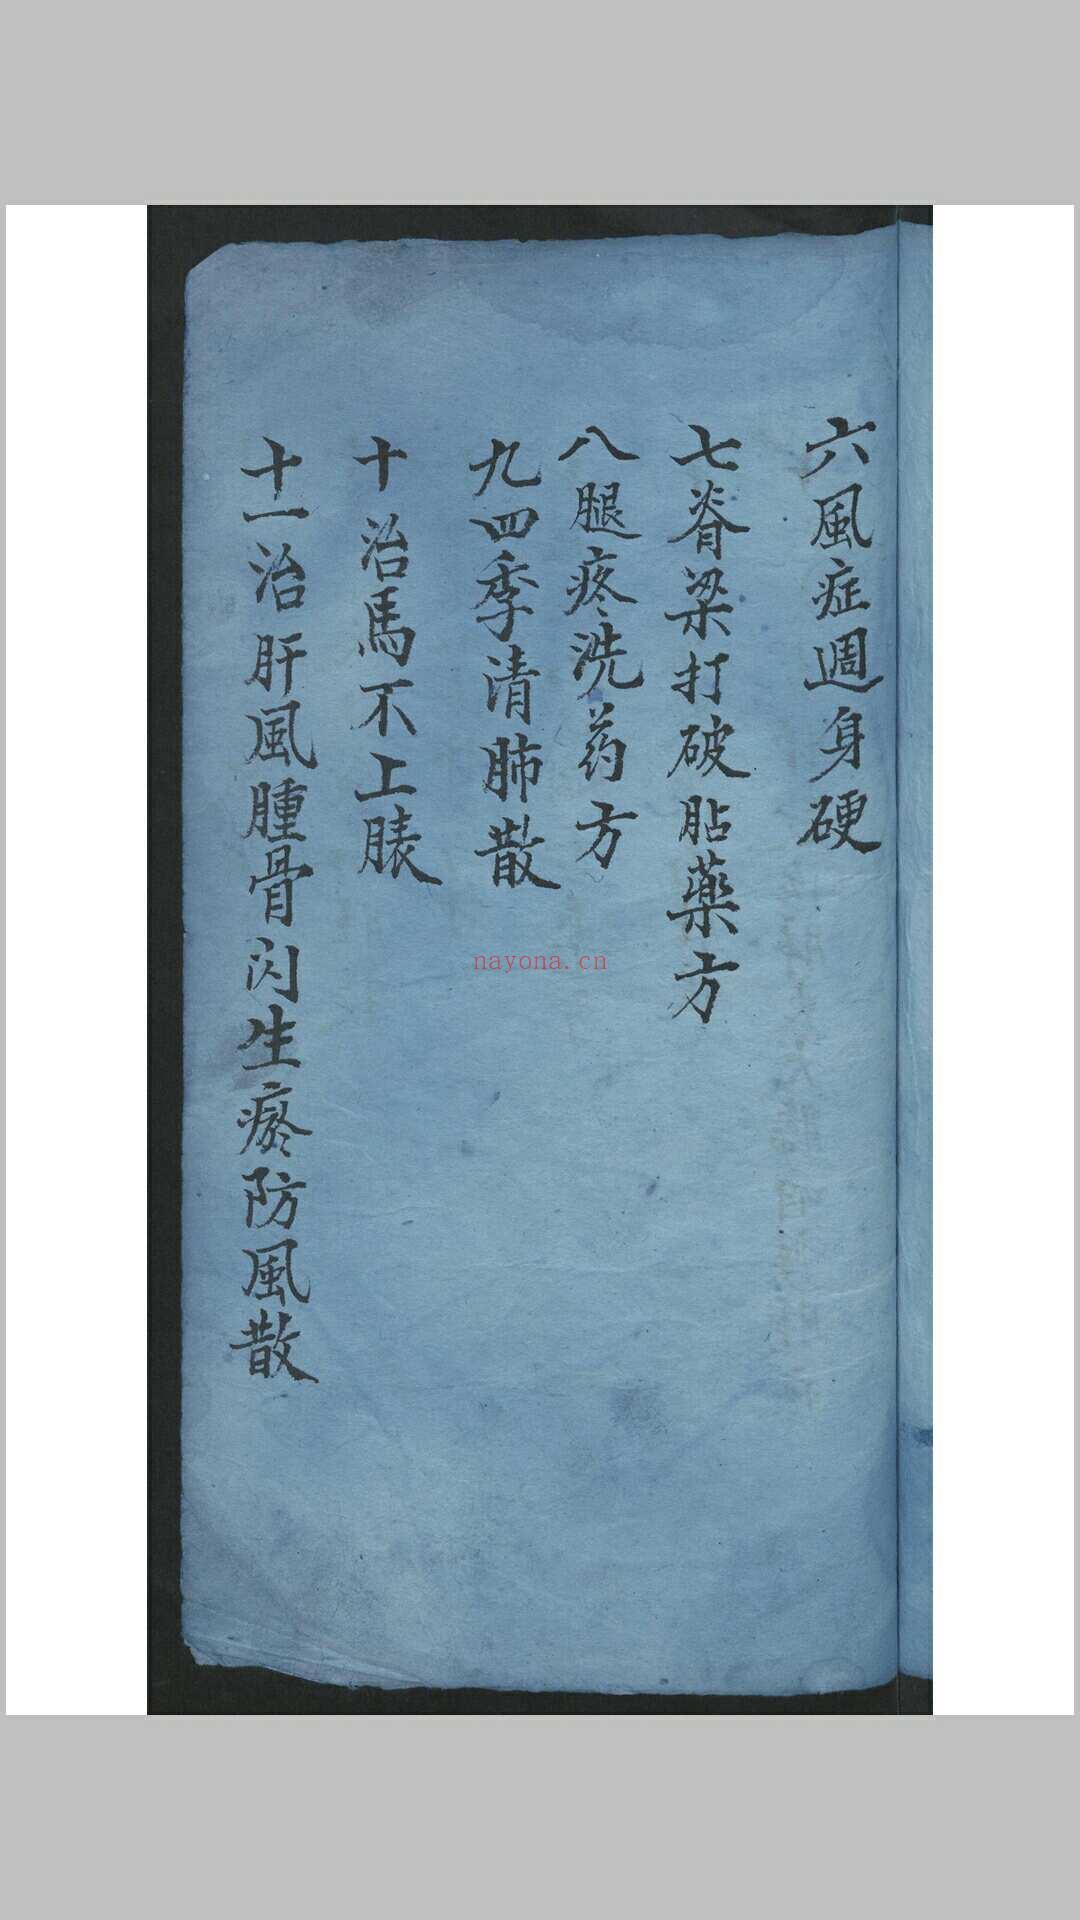 六風症週身硬
七脊梁打破貼藥方
八腿疼洗药方
九四季清肺散
十治馬不上膘
十一治肝風腫骨闪生瘀防風散
nayona.cn